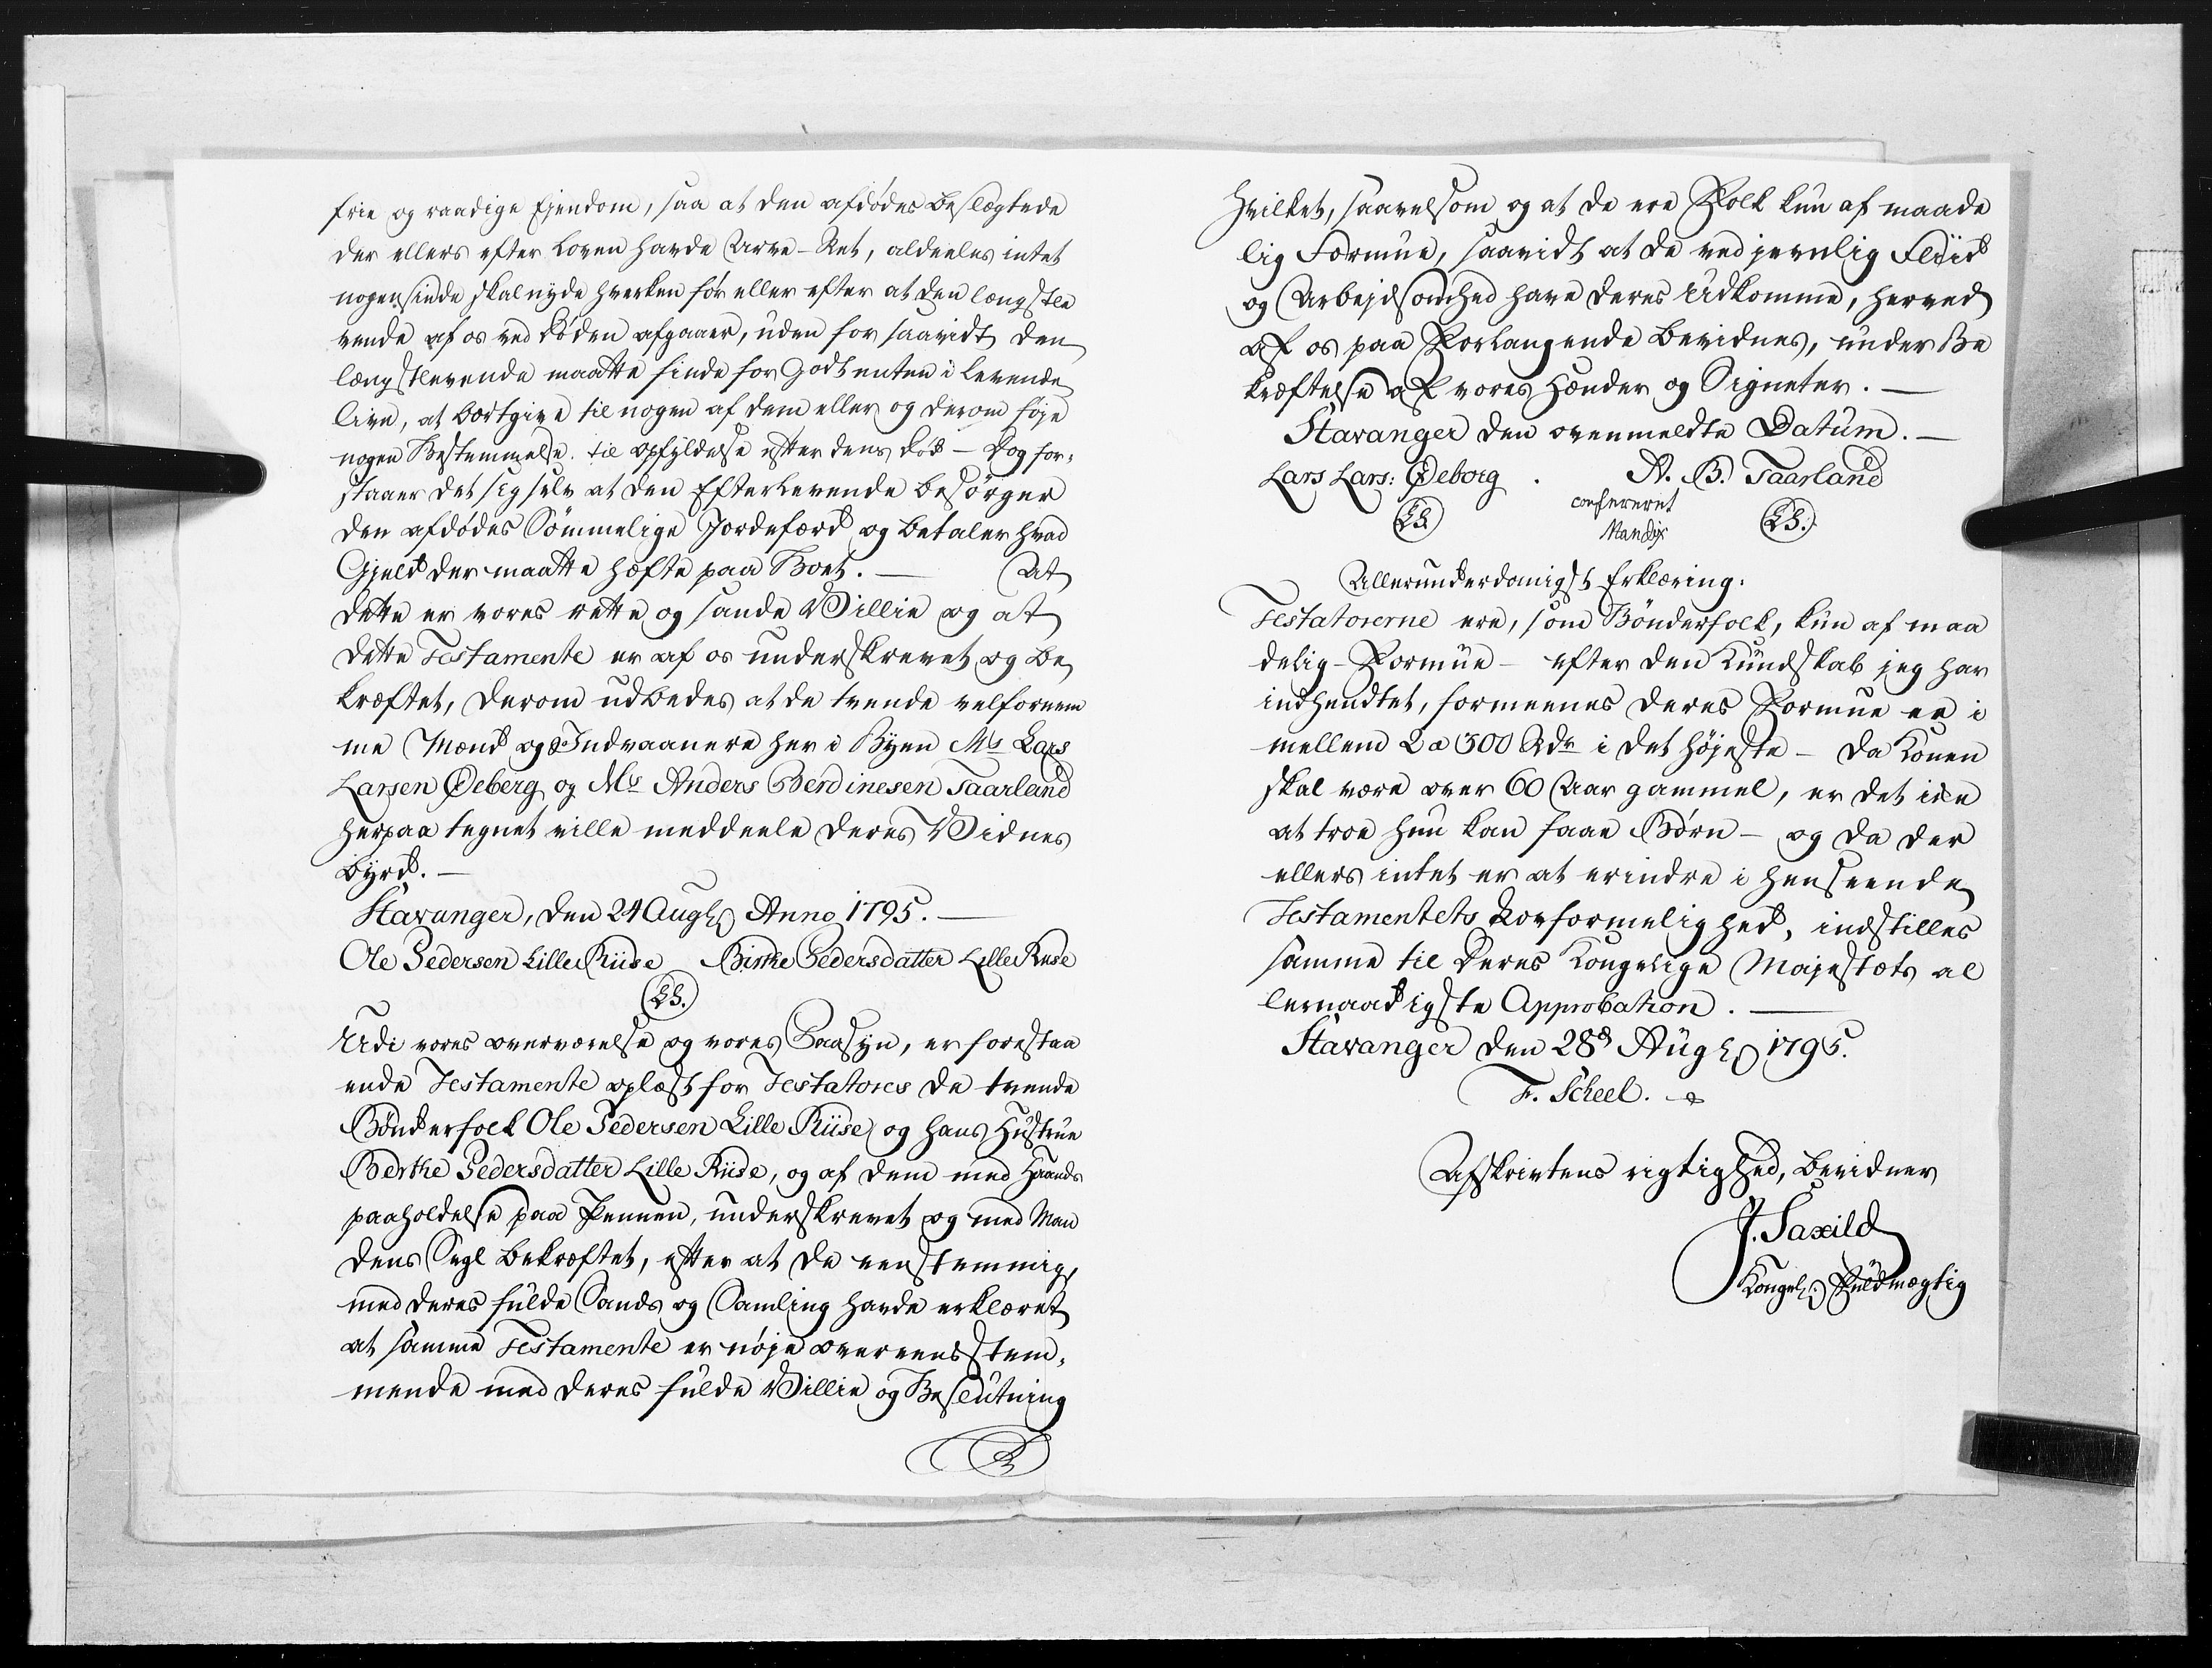 frie og raadige Ejendom, saa at den afdødes beslægtede
der ellers efter Loven havde Arve-Ret, aldeeles intet
nogensinde skal nyde hverken før eller efter at den længstle
vende af os ved Døden afgaaer, uden for saavidt den
længstlevende maatte finde for Godt enten i levende
Live, at bortgive til nogen af dem eller og derom føje
nogen Bestemmelse til Opfyldelse efter dens Død - Dog for-
staaer det sig selv at den Efterlevende besørger
den afdødes Sömmelige Jordefærd og betaler hvad
Gjeld der maatte hæfte paa Boet. — At
dette er vores rette og sande Willie og at
dette Testamente er af os underskrevet og be
kræftet, derom udbedes at de tvende velfornem
me Mænd og Indvaanere her i Byen Mr Lars
Larsen Øeberg og Mr Anders Berdinesen Taarland
herpaa tegnet ville meddeele deres Widnes
byrd. —
Stavanger, den 24 Augs Anno 1795. —
Ole Pedersen Lille Riise Birthe Pedersdatter Lille Riise
(LS.)
Udi vores overværelse og vores Paasyn, er forestaa
ende Testamente oplæst for Testatores de tvende
Bönderfolk Ole Pedersen Lille Riise og hans Hustrue
Berthe Pedersdatter Lille Riise, og af dem med Haands
paaholdelse paa Pennen, underskrevet og med Man
dens Segl bekræftet, efter at de eenstemmig,
med deres fulde Sands og Samling havde erklæret
at samme Testamente er nøje overeensstem-
mende med deres fulde Willie og Beslutning
Hvilket, saavelsom og at de ere Folk kun af maade
lig Formue, saavidt at de ved jevnlig Fliid
og Arbejdsomhed have deres Udkomme, herved
af os paa Forlangende bevidnes, under Be
kræftelse af vores Hænder og Signeter. —
Stavanger den ovenmeldte Datum. —
Lars Lars: Øeborg . A. B. Taarland
confereret
(LS.) Mandix (LS.)
Allerunderdanigst Erklæring:
Testatorerne ere, som Bönderfolk, kun af maa
delig Formue - efter den Kundskab jeg har
indhendtet, formeenes deres Formue er i
mellem 2 a 300 Rdr i det højeste - da Konen
skal være over 60 Aar gammel, er det icke
at troe hun kan faae Børn - og da der
ellers intet er at erindre i Henseende
Testamentets Lovformelighed, indstilles
samme til Deres Kongelige Majestæts al
lernaadigste Approbation. —
Stavanger den 28d Augs 1795.
F. Scheel.
Afskrivtens rigtighed, bevidner
J. Saxild
Kongel: Fuldmægtig